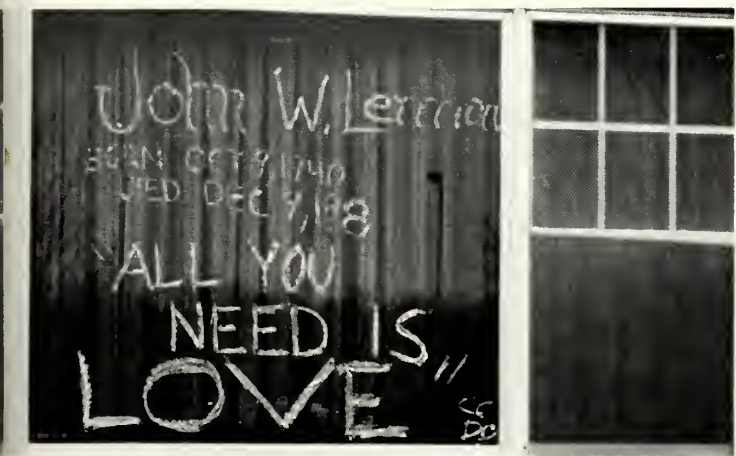 John W. Lennon
BORN OCT 9 1940
DIED DEC 9, 198
"ALL YOU
NEED IS
LOVE"
CC
DC